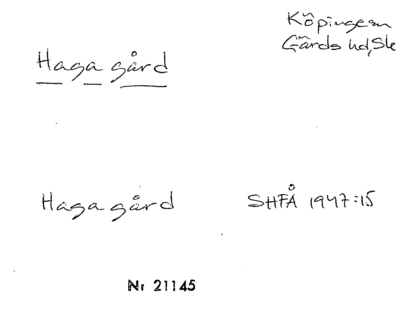 Köpinge sn
Gärds hd, Sk
Haga gård
Haga gård SHFÅ 1947:15
Nr 21145